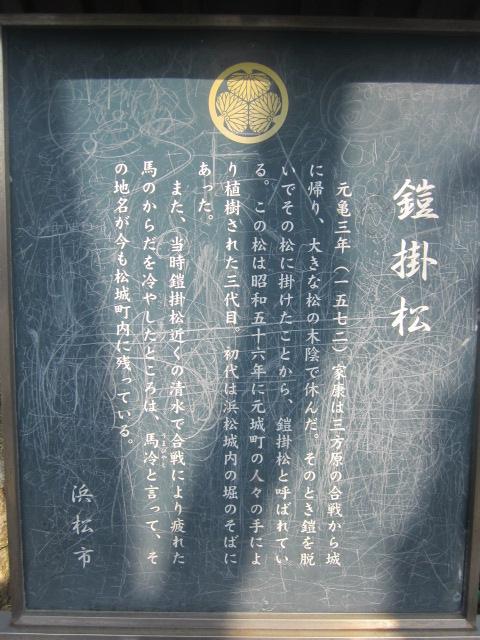 鎧掛松
元亀三年（一五七二）家康は三方原の合戦から城
に帰り、大きな松の木陰で休んだ。そのとき鎧を脱
いでその松に掛けたことから、鎧掛松と呼ばれてい
る。この松は昭和五十六年に元城町の人々の手によ
り植樹された三代目。初代は浜松城内の堀のそばに
あった。
また、当時鎧掛松近くの清水で合戦により疲れた
馬のからだを冷やしたところは、馬冷と言って、そ
の地名が今も松城町内に残っている。
浜松市